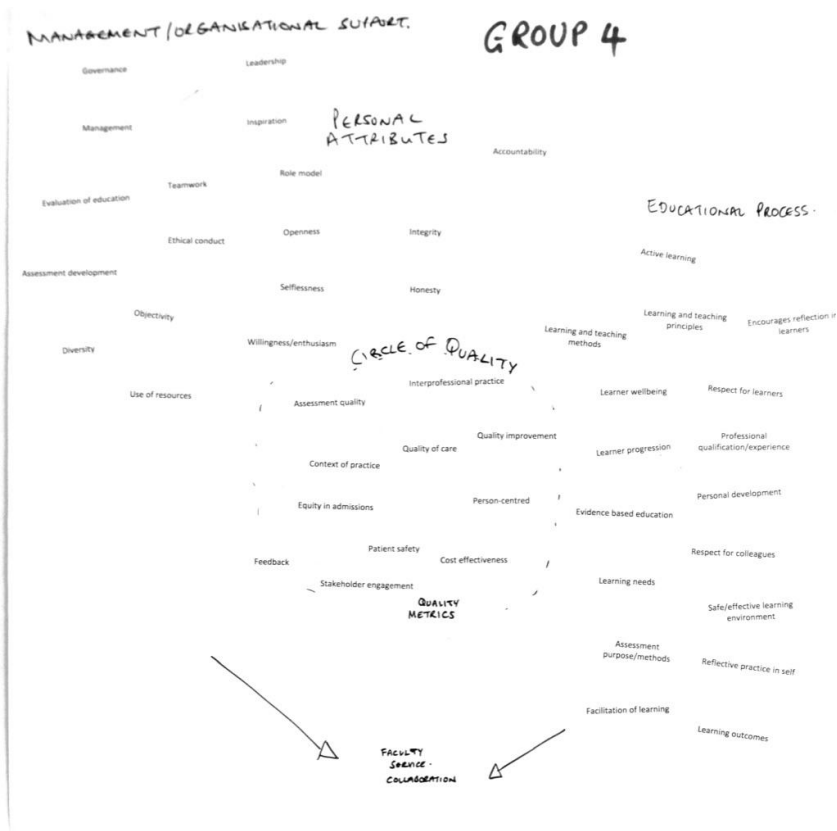 MANAGEMENT/ORGANISATIONAL SUPPORT.
GROUP 4
Governance
Leadership
Management
Inspiration
PERSONAL
ATTRIBUTES
Accountability
Teamwork
Role model
Evaluation of education
EDUCATIONAL PROCESS.
Ethical conduct
Openness
Integrity
Active learning
Assessment development
Selflessness
Honesty
Objectivity
Learning and teaching
principles
Encourages reflection in
learners
Learning and teaching
methods
Diversity
Willingness/enthusiasm
CIRCLE OF QUALITY
Interprofessional practice
Use of resources
Assessment quality
Learner wellbeing
Respect for learners
Quality improvement
Quality of care
Context of practice
Learner progression
Professional
qualification/experience
Equity in admissions
Person-centred
Evidence based education
Personal development
Patient safety
Cost effectiveness
Feedback
Respect for colleagues
Stakeholder engagement
Learning needs
QUALITY
METRICS
Safe/effective learning
environment
Assessment
purpose/methods
Reflective practice in self
Facilitation of learning
Learning outcomes
FACULTY
SERVICE.
COLLABORATION